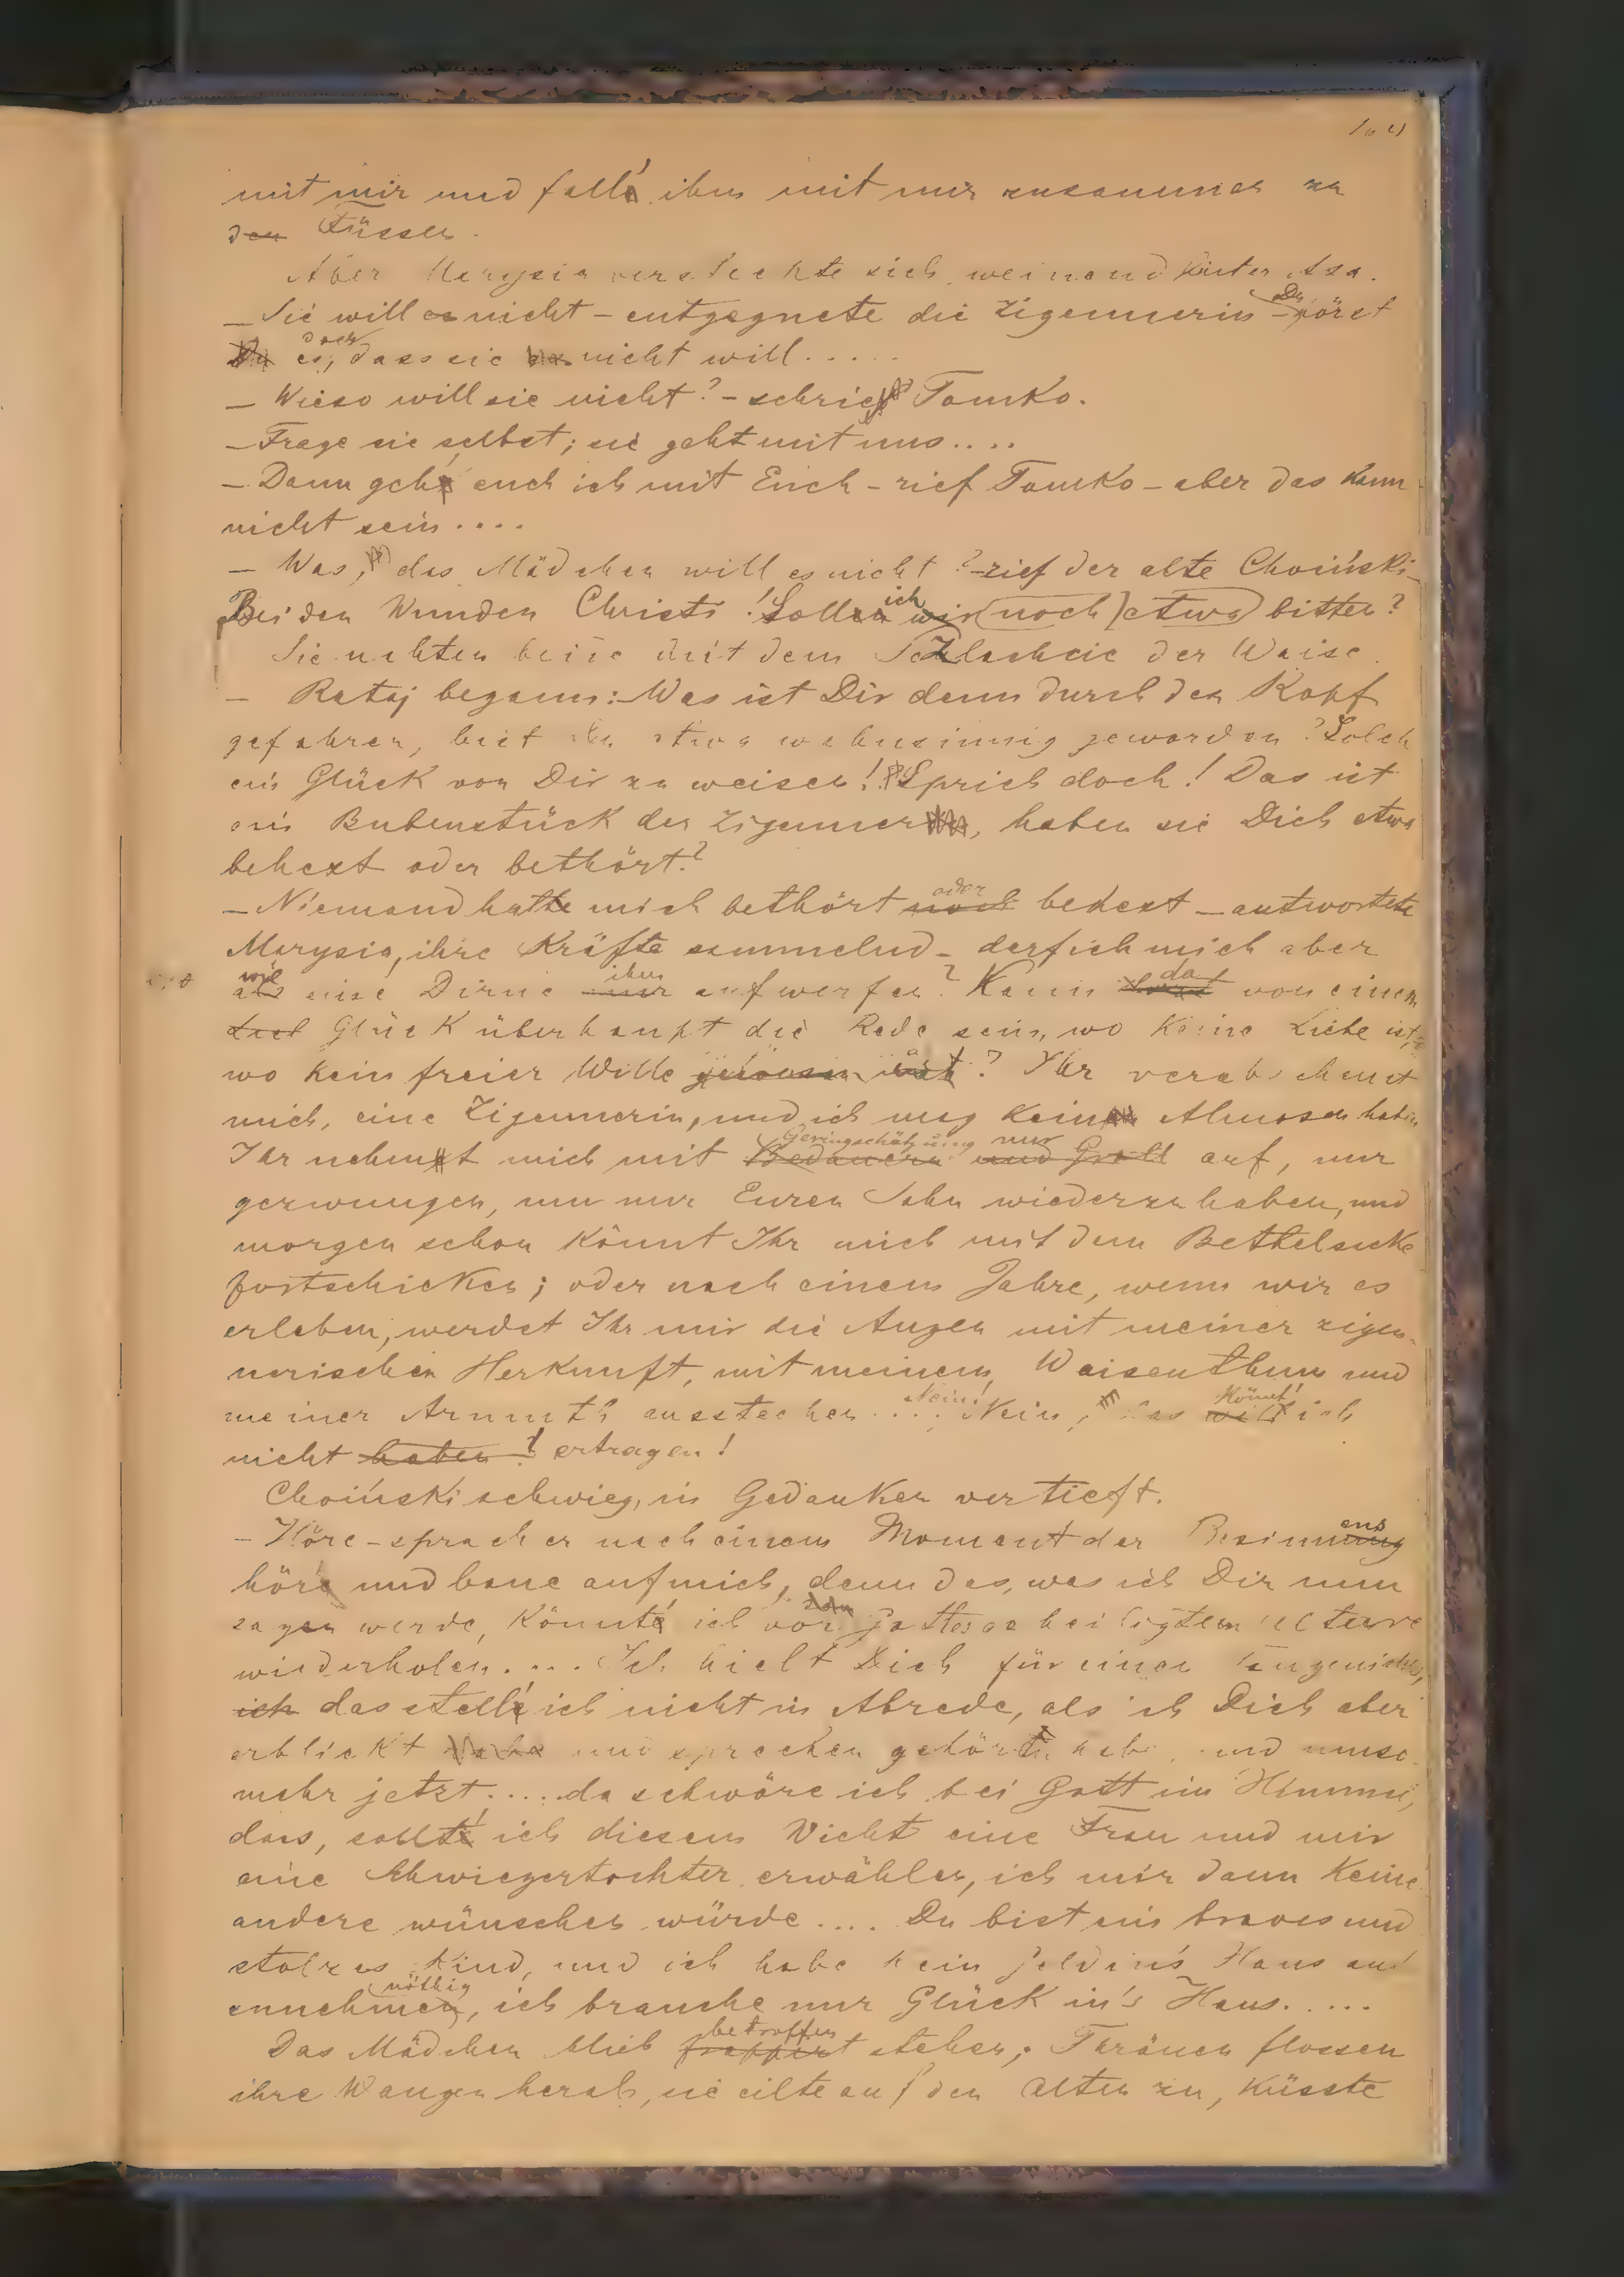 mit mir und fall' ihm mit mir zusammen zu
den Füssen.
Aber Marysia versteckte sich weinend hinter Aza.
— Sie will es nicht – entgegnete die Zigeunerin – Du hörst
Du es doch, dass sie es nicht will.....
— Wieso will sie nicht? – schrie Tomko.
— Frage sie selbst; sie geht mit uns....
— Dann geh' auch ich mit Euch – rief Tomko – aber das kann
nicht sein....
— Was, das Mädchen will es nicht? – rief der alte Choiński –
Bei den Wunden Christi! Sollen ich wir noch etwa bitten?
Sie nahten beide mit dem Szlachcic der Waise.
— Rataj begann: – Was ist Dir denn durch den Kopf
gefahren, bist Du etwa wahnsinnig geworden? Solch
ein Glück von Dir zu weisen! Sprich doch! Das ist
ein Bubenstück der Zigeuner, haben sie Dich etwa
behext oder bethört?
— Niemand hatte mich bethört noch oder behext — antwortete
Marysia, ihre Kräfte sammelnd – darf ich mich aber
als wie eine Dirne ihm aufwerfen? Kann da von einem
Glück überhaupt die Rede sein, wo keine Liebe ist,
wo kein freier Wille gewesen ist? Ihr verabscheut
mich, eine Zigeunerin, und ich mag kein Almosen haben
Ihr nehmt mich mit Bedauern Geringschätzung nur und Groll auf, nur
gezwungen, um nur Euren Sohn wiederzuhaben, und
morgen schon könnt Ihr mich mit dem Bettelsacke
fortschicken; oder nach einem Jahre, wenn wir es
erleben, werdet Ihr mir die Augen mit meiner zigeu-
nerischen Herkunft, mit meinem Waisenthum und
meiner Armuth ausstechen.... Nein! Nein, das will könnt' ich
nicht haben! ertragen!
Choiński schwieg, in Gedanken vertieft.
— Höre – sprach er nach einem Moment der Besinnung ens
höre und baue auf mich, denn das, was ich Dir nun
sagen werde, könnte ich vor dem Gottes geheiligtem Altare
wiederholen.... Ich hielt Dich für einen Taugenichts,
ich das stell' ich nicht in Abrede, als ich Dich aber
erblickt habe und sprechen gehört hab', und umso
mehr jetzt.... da schwöre ich bei Gott im Himmel,
dass, sollt' ich diesem Wicht eine Frau und mir
eine Schwiegertochter erwählen, ich mir dann keine
andere wünschen würde.... Du bist ein braves und
stolzes Kind, und ich habe kein Geld in's Haus
annehmen nöthig, ich brauche nur Glück in's Haus.....
Das Mädchen blieb frappirt betroffen stehen; Thränen flossen
ihre Wangen herab, sie eilte auf den Alten zu, küsste